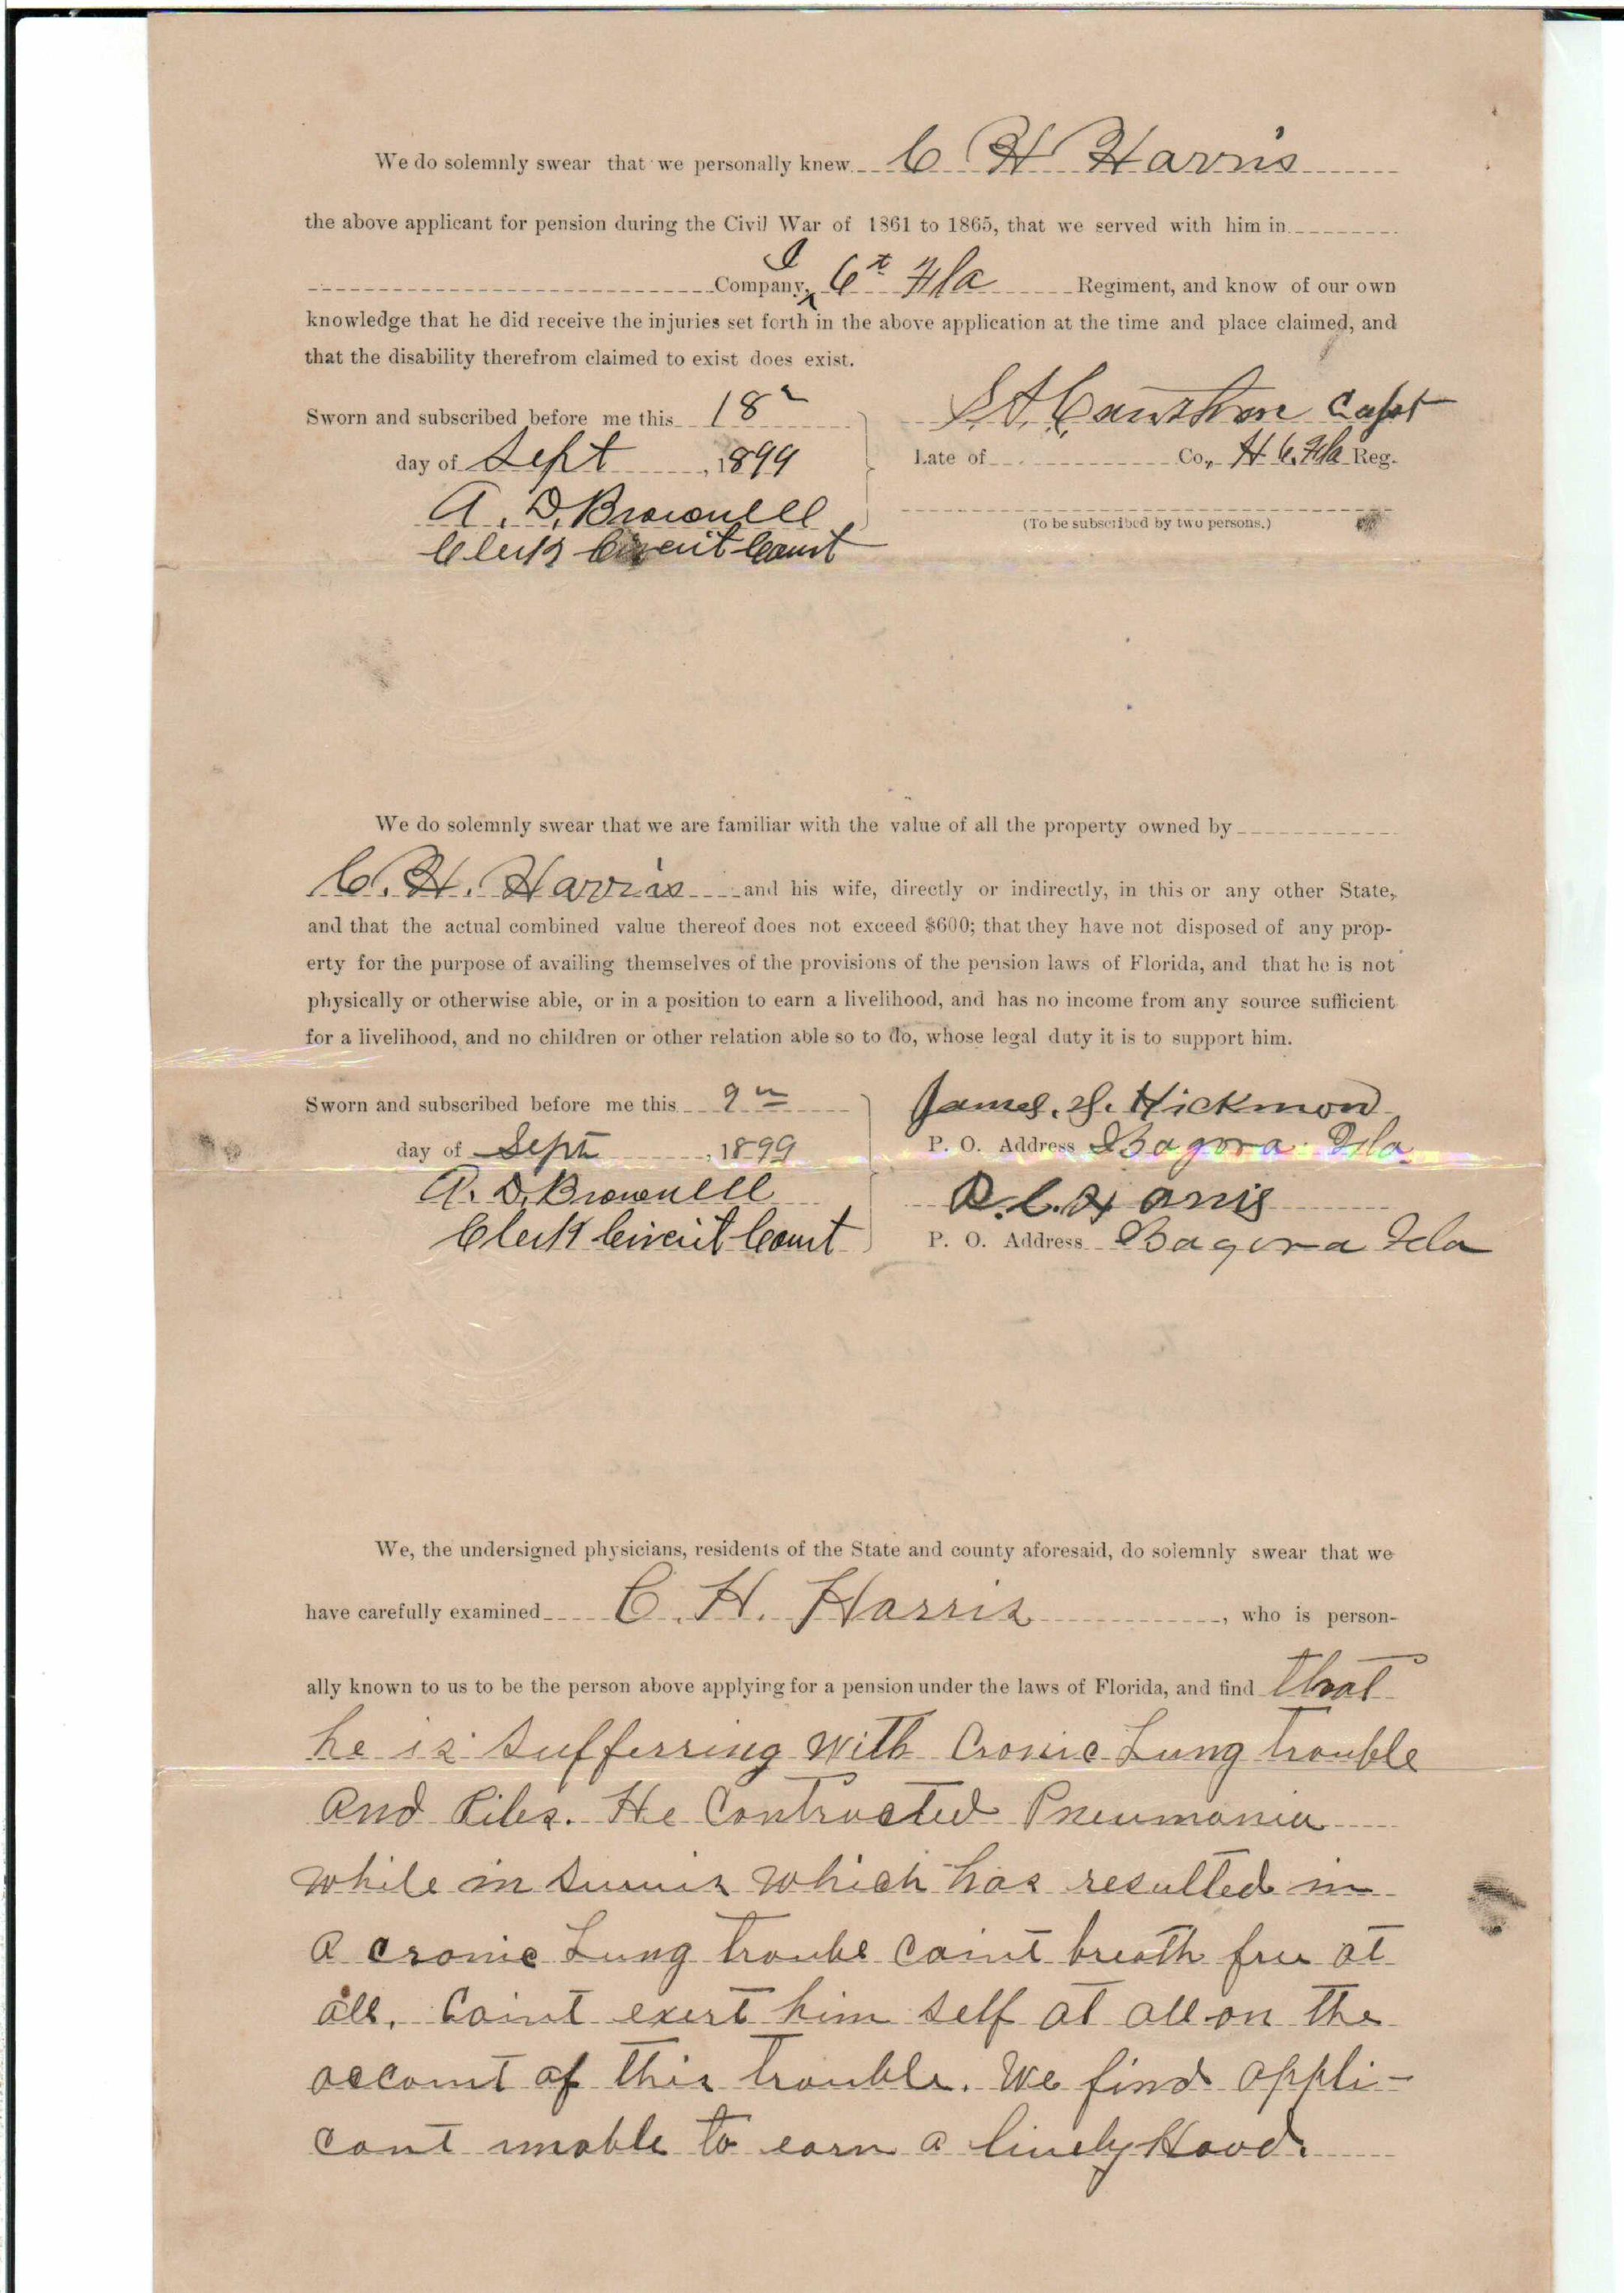 We do solemnly swear that we personally knew C H Harris
the above applicant for pension during the Civil War of 1861 to 1865, that we served with him in
I
Company, 6t Fla Regiment, and know of our own
knowledge that he did receive the injuries set forth in the above application at the time and place claimed, and
that the disability therefrom claimed to exist does exist.
Sworn and subscribed before me this 18 S. A. Cawthon Capt
day of Sept, 1899 Late of Co., H 6. Fla Reg.
A. D. Brownell
(To be subscribed by two persons.)
Clerk Circuit Court
We do solemnly swear that we are familiar with the value of all the property owned by
C. H. Harris and his wife, directly or indirectly, in this or any other State,
and that the actual combined value thereof does not exceed $600; that they have not disposed of any prop-
erty for the purpose of availing themselves of the provisions of the pension laws of Florida, and that he is not
physically or otherwise able, or in a position to earn a livelihood, and has no income from any source sufficient
for a livelihood, and no children or other relation able so to do, whose legal duty it is to support him.
Sworn and subscribed before me this 9 James. Hickmon
day of Sept, 1899 P. O. Address Bagora Fla
A. D. Brownell R. C. Harris
Clerk Circuit Court P. O. Address Bagora Fla
We, the undersigned physicians, residents of the State and county aforesaid, do solemnly swear that we
have carefully examined C. H. Harris, who is person-
ally known to us to be the person above applying for a pension under the laws of Florida, and find that
he is sufferring with Cronic Lung trouble
and Piles. He Contracted Pneumonia
while in which has resulted in
a cronic Lung trouble caint breath free at
all. Caint exert him self at all on the
account of this trouble. We find appli-
cant unable to earn a livelyHood.